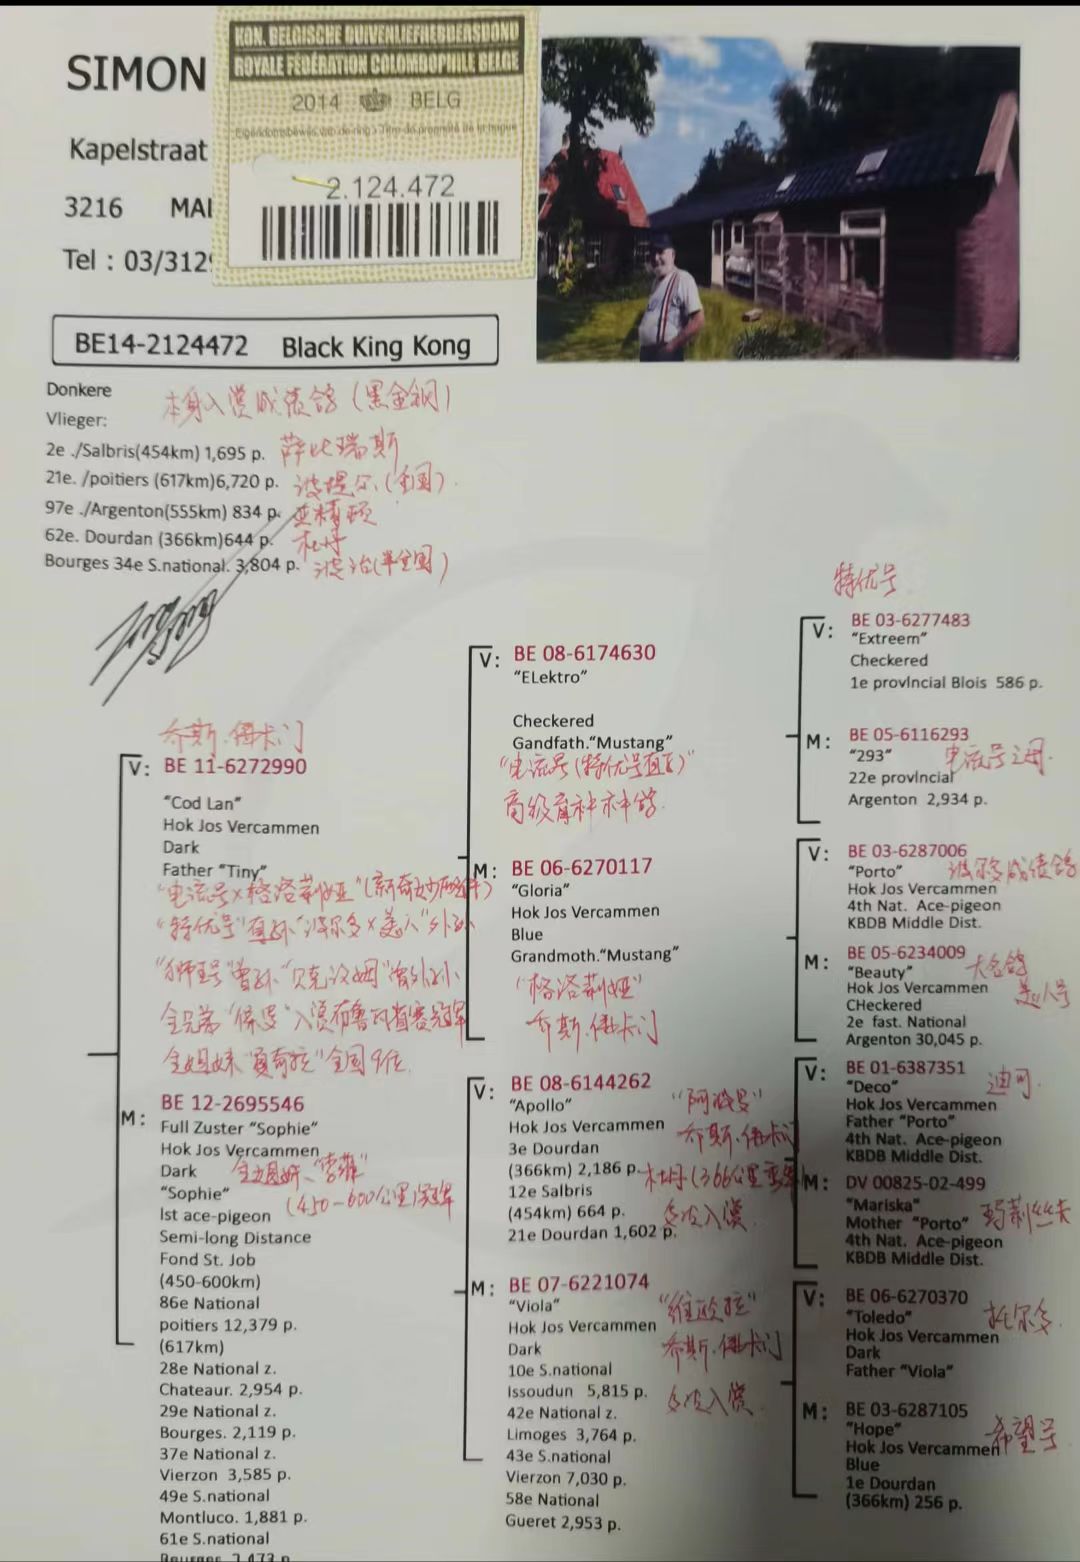 SIMON
Kapelstraat
3216 MAI
Tel : 03/312
KON. BELGISCHE DUIVENLIEFHEBBERSBOND
ROYALE FÉDÉRATION COLOMBOPHILE BELGE
2014 BELG
Eigendomsbewijs van de ring - Titre de propriété de la bague
2.124.472
BE14-2124472 Black King Kong
Donkere
本身入赏成绩鸽（黑金钢）
Vlieger:
2e ./Salbris(454km) 1,695 p. 薛比瑞斯
21e. /poitiers (617km)6,720 p. 波提尔(全国)
97e ./Argenton(555km) 834 p. 亚精顿
62e. Dourdan (366km)644 p. 杜丹
Bourges 34e S.national. 3,804 p. 波治(半全国)
乔斯.佛卡门
V: BE 11-6272990
"Cod Lan"
Hok Jos Vercammen
Dark
Father "Tiny"
"电流号×格洛莉娅"
"特优号"直孙"波尔多×美人"外孙
"狮王号"曾孙"贝克汉姆"曾外孙
全兄弟"保罗"入赏布鲁瓦省赛冠军
全姐妹 全国9位
M: BE 12-2695546
Full Zuster "Sophie"
Hok Jos Vercammen
Dark 全姐妹"索菲"
"Sophie" (450-600公里)冠军
Ist ace-pigeon
Semi-long Distance
Fond St. Job
(450-600km)
86e National
poitiers 12,379 p.
(617km)
28e National z.
Chateaur. 2,954 p.
29e National z.
Bourges. 2,119 p.
37e National z.
Vierzon 3,585 p.
49e S.national
Montluco. 1,881 p.
61e S.national
Bourges 2,473 p.
V: BE 08-6174630
"ELektro"
Checkered
Gandfath."Mustang"
"电流号(特优号直子)"
高级育种种鸽
M: BE 06-6270117
"Gloria"
Hok Jos Vercammen
Blue
Grandmoth."Mustang"
"格洛莉娅"
乔斯.佛卡门
V: BE 08-6144262
"Apollo" "阿波罗"
Hok Jos Vercammen 乔斯.佛卡门
3e Dourdan
(366km) 2,186 p. 杜丹(366公里季军)
12e Salbris
(454km) 664 p. 多次入赏
21e Dourdan 1,602 p.
M: BE 07-6221074
"Viola" "维欧拉"
Hok Jos Vercammen 乔斯.佛卡门
Dark
10e S.national
Issoudun 5,815 p. 多次入赏
42e National z.
Limoges 3,764 p.
43e S.national
Vierzon 7,030 p.
58e National
Gueret 2,953 p.
特优号
V: BE 03-6277483
"Extreem"
Checkered
1e provIncial Blois 586 p.
M: BE 05-6116293
"293" 电流号之母
22e provIncial
Argenton 2,934 p.
V: BE 03-6287006
"Porto" 波尔多成绩鸽
Hok Jos Vercammen
4th Nat. Ace-pigeon
KBDB Middle Dist.
M: BE 05-6234009
"Beauty" 大名鸽
Hok Jos Vercammen 美人号
CHeckered
2e fast. National
Argenton 30,045 p.
V: BE 01-6387351
"Deco" 迪可
Hok Jos Vercammen
Father "Porto"
4th Nat. Ace-pigeon
KBDB Middle Dist.
M: DV 00825-02-499
"Mariska" 玛莉丝卡
Mother "Porto"
4th Nat. Ace-pigeon
KBDB Middle Dist.
V: BE 06-6270370
"Toledo" 托尔多
Hok Jos Vercammen
Dark
Father "Viola"
M: BE 03-6287105
"Hope" 希望号
Hok Jos Vercammen
Blue
1e Dourdan
(366km) 256 p.